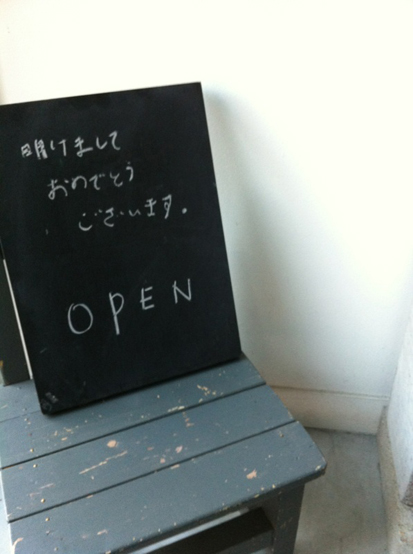 明けまして
おめでとう
ございます。
OPEN